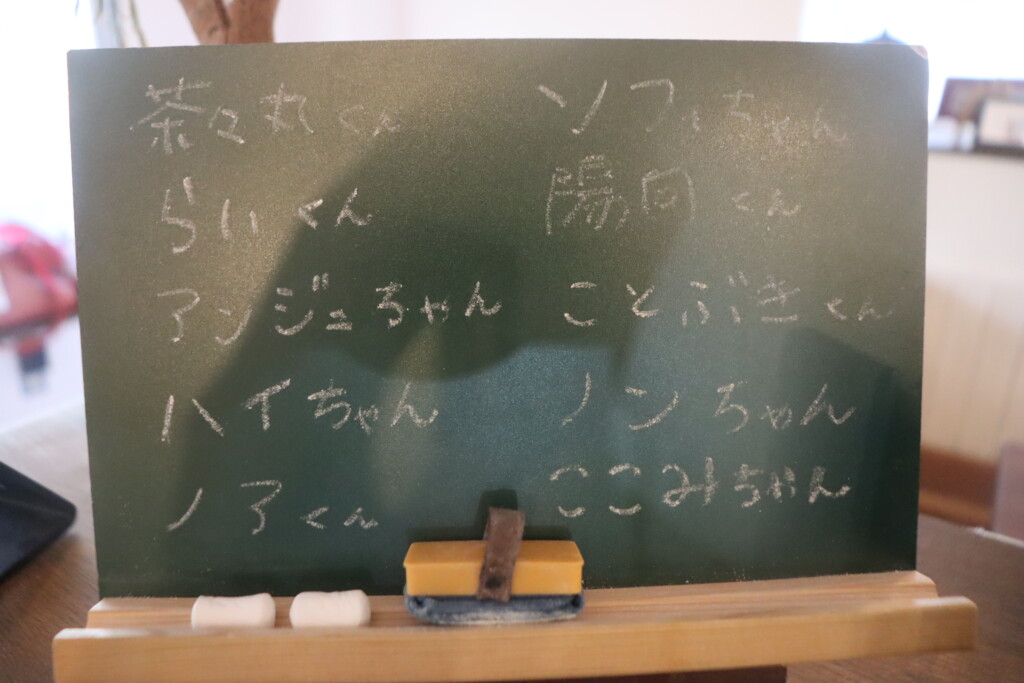 茶々丸くん
らいくん
アンジュちゃん
ハイちゃん
ノアくん
ソフィちゃん
陽向くん
ことぶきくん
ノンちゃん
ここみちゃん